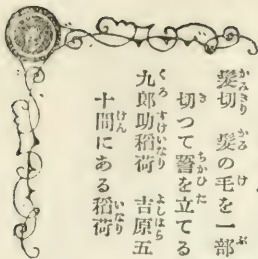 髮切　髮の毛を一部
切つて誓を立てる
九郎助稲荷　吉原五
十間にある稲荷